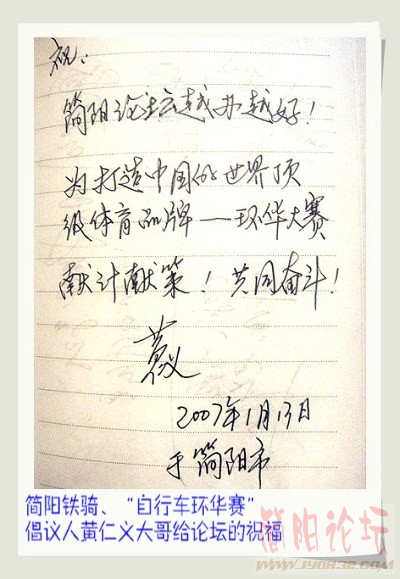 祝：
简阳论坛越办越好！
为打造中国的世界顶
级体育品牌——环华大赛
献计献策！共同奋斗！
2007年1月13日
于简阳市
简阳铁骑、“自行车环华赛”
倡议人黄仁义大哥给论坛的祝福
简阳论坛